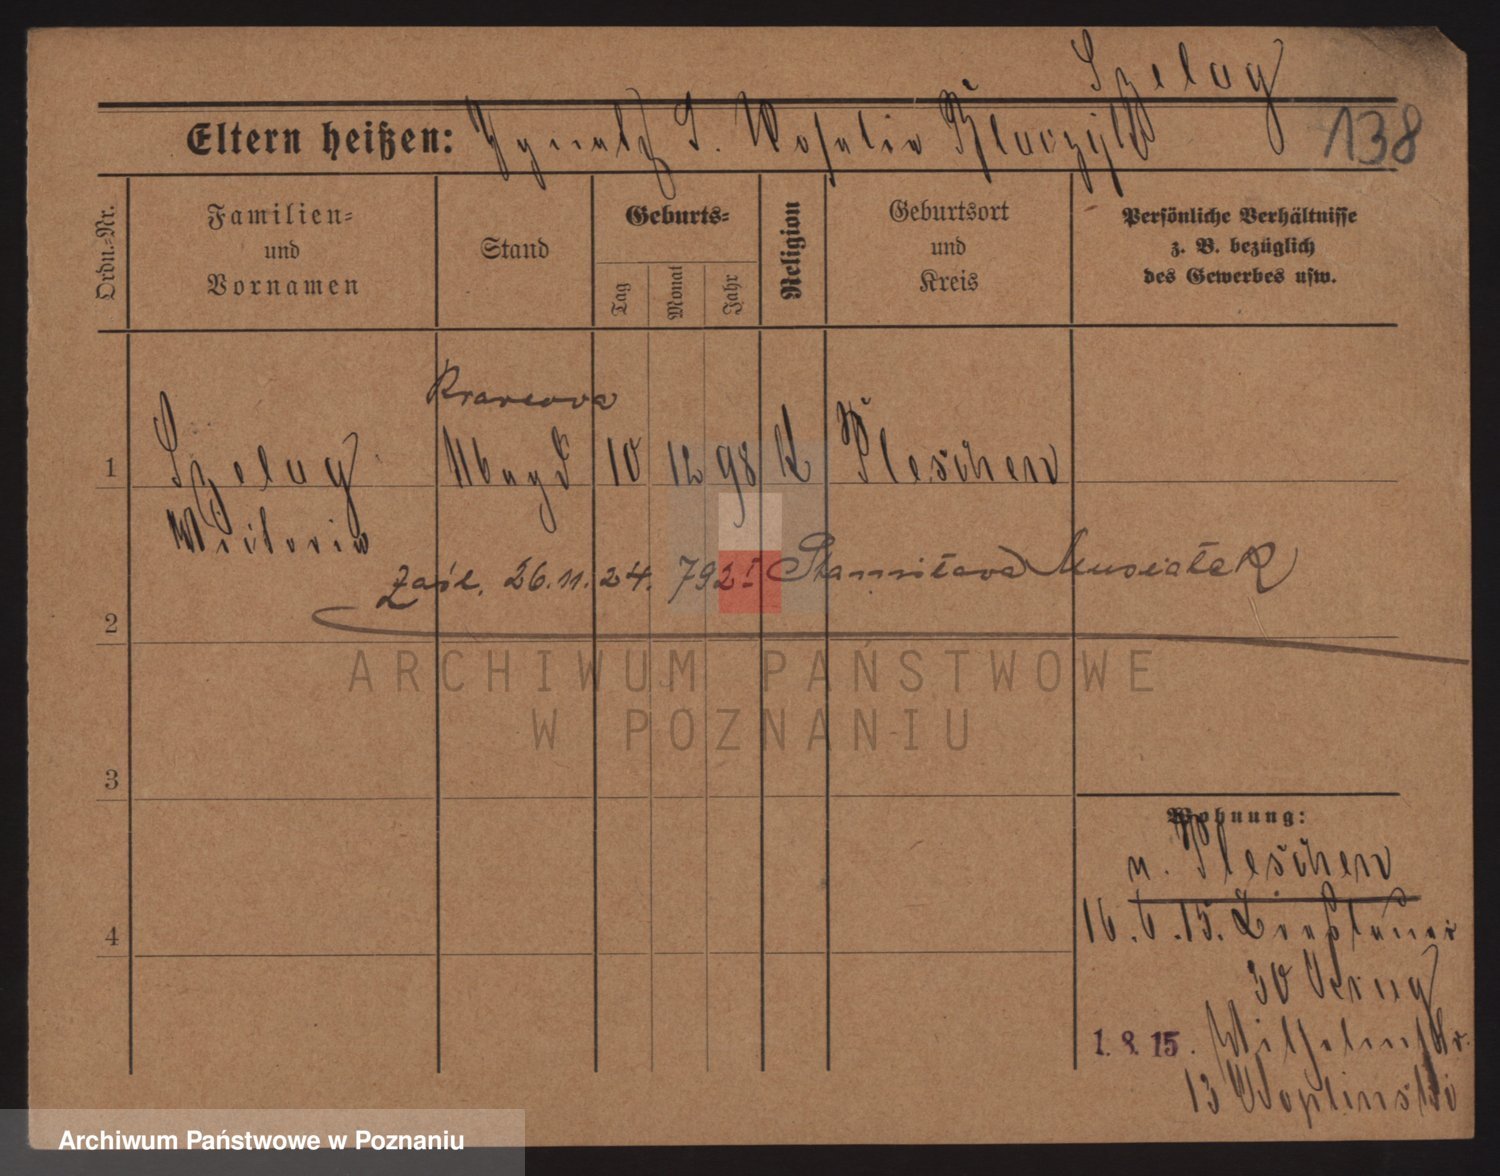 Szelag
Eltern heißen: Ignatz S. Rosalia
138
Ordn.-Nr.
Familien-
und
Vornamen
Stand
Geburts-
Tag
Monat
Jahr
Religion
Geburtsort
und
Kreis
Persönliche Verhältnisse
z. B. bezüglich
des Gewerbes usw.
Krawcowa
1 Szelag Magd 10 12 98 K Pleschen
Wiktoria
Zaśl. 26.11.24. 792 I Stanisława Musiałek
2
ARCHIWUM PAŃSTWOWE
W POZNANIU
3
Wohnung:
n. Pleschen
4
16.6.15.
30
1.8.15. Wilhelmstr.
13
Archiwum Państwowe w Poznaniu